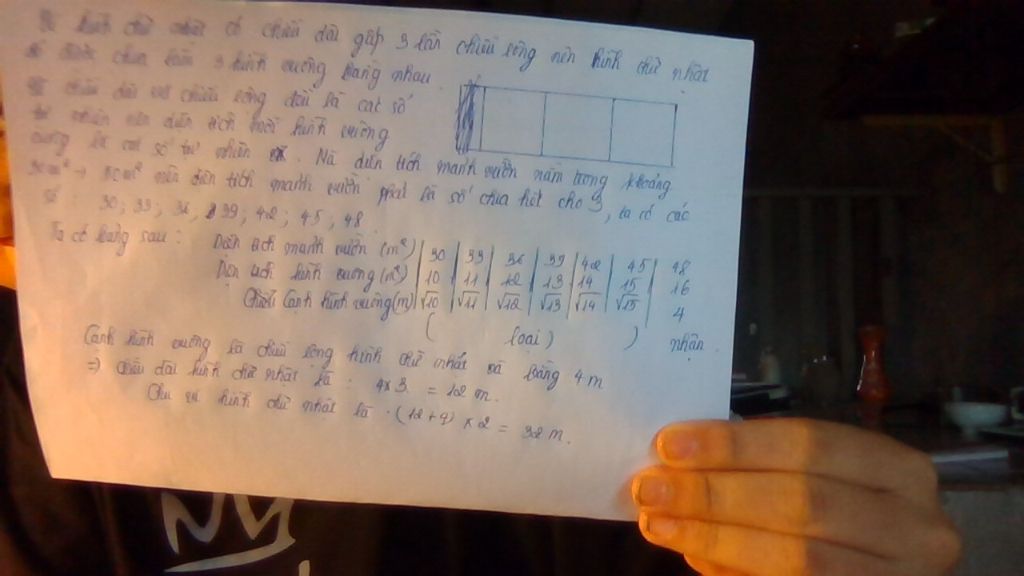 hình chữ nhật có chiều dài gấp 3 lần chiều rộng nên hình chữ nhật
được chia làm 3 hình vuông bằng nhau.
chiều dài và chiều rộng đều là các số
tự nhiên nên diện tích mỗi hình vuông
cũng là số tự nhiên. Mà diện tích mảnh vườn nằm trong khoảng
nên diện tích mảnh vườn phải là số chia hết cho 3, ta có các
số : 30; 33; 36, 39; 42; 45, 48
Ta có bảng sau : Diện tích mảnh vườn (m²) | 30 | 33 | 36 | 39 | 42 | 45 | 48
Diện tích hình vuông (m²) | 10 | 11 | 12 | 13 | 14 | 15 | 16
Cạnh hình vuông (m) | √10 | √11 | √12 | √13 | √14 | √15 | 4
( loại ) ) nhận
Cạnh hình vuông là chiều rộng hình chữ nhật và bằng 4 m
=> chiều dài hình chữ nhật là : 4x3 = 12 m.
Chu vi hình chữ nhật là : (12+4) x 2 = 32 m.